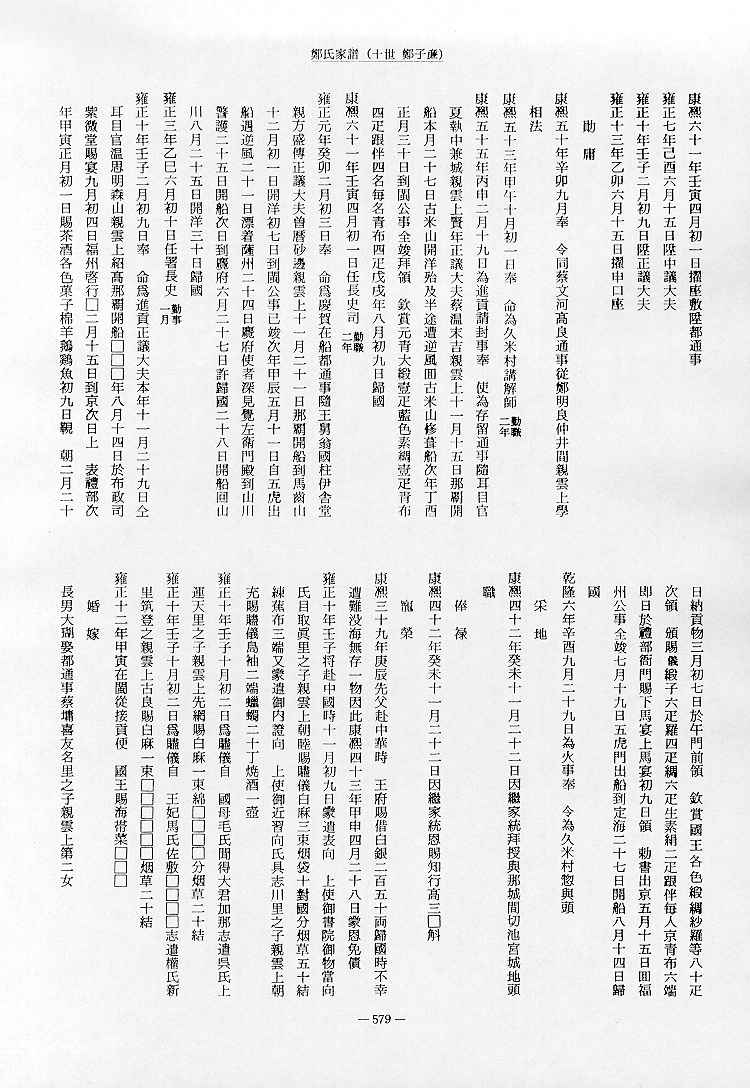 鄭氏家譜（十世 鄭子廉）
康熙六十一年壬寅四月初一日擢座敷陞都通事
雍正七年己酉六月十五日陞中議大夫
雍正十年壬子二月初九日陞正議大夫
雍正十三年乙卯六月十五日擢申口座
勛庸
康熙五十年辛卯九月奉　令同蔡文河高良通事從鄭明良仲井間親雲上學
相法
康熙五十三年甲午十月初一日奉　命為久米村講解師勤職二年
康熙五十五年丙申二月十九日為進貢請封事奉　使為存留通事隨耳目官
夏執中兼城親雲上賢年正議大夫蔡温末吉親雲上十一月十五日那覇開
船本月二十七日古米山開洋殆及半途遭逆風囬古米山修葺船次年丁酉
正月三十日到閩公事全竣拜領　欽賞元青大緞壹疋藍色素綢壹疋青布
四疋跟伴四名毎名青布四疋戊戌年八月初九日歸國
康熙六十一年壬寅四月初一日任長史司勤職二年
雍正元年癸卯二月初三日奉　命爲慶賀在船都通事隨王舅翁國柱伊舎堂
親方盛傳正議大夫曽暦砂邊親雲上十一月二十一日那覇開船到馬齒山
十二月初一日開洋初七日到閩公事已竣次年甲辰五月十一日自五虎出
船遇逆風二十一日漂着薩州二十四日麑府使者深見覺左衛門殿到山川
警護二十五日開船次日到麑府六月二十七日許歸國二十八日開船囬山
川八月二十五日開洋三十日歸國
雍正三年乙巳六月初十日任署長史勤事一月
雍正十年壬子二月初九日奉　命爲進貢正議大夫本年十一月二十九日仝
耳目官温思明森山親雲上紹高那覇開船□□□年八月十四日於布政司
紫微堂賜宴九月初四日福州啓行□二月十五日到京次日上　表禮部次
年甲寅正月初一日賜茶酒各色菓子棉羊鵝鷄魚初九日覲　朝二月二十
日納貢物三月初七日於午門前領　欽賞國王各色緞綢紗羅等八十疋
次領　頒賜儀緞子六疋羅四疋綢六疋生素絹二疋跟伴毎人京青布六端
即日於禮部衙門賜下馬宴上馬宴初九日領　勅書出京五月十五日囬福
州公事全竣七月十九日五虎門出船到定海二十七日開船八月十四日歸
國
乾隆六年辛酉九月二十九日為火事奉　令為久米村惣與頭
采地
康熙四十二年癸未十一月二十二日因繼家統拜授與那城間切池宮城地頭
職
俸禄
康熙四十二年癸未十一月二十二日因繼家統恩賜知行高三□斛
寵榮
康熙三十九年庚辰先父赴中華時　王府賜借白銀二百五十両歸國時不幸
遭難没海無存一物因此康熙四十三年甲申四月二十八日蒙恩免債
雍正十年壬子將赴中國時十一月初九日蒙遣表向　上使御書院御物當向
氏目取眞里之子親雲上朝睦賜贐儀白麻三束烟袋十對國分烟草五十結
練蕉布三端又蒙遣御内證向　上使御近習向氏具志川里之子親雲上朝
充賜贐儀島袖二端蠟蠋二十丁焼酒一壺
雍正十年壬子十月初二日爲贐儀自　國母毛氏聞得大君加那志遣呉氏上
運天里之子親雲上先網賜白麻一束綿□□□分烟草二十結
雍正十年壬子十月初二日爲贐儀自　王妃馬氏佐敷□□□□志遣權氏新
里筑登之親雲上古良賜白麻一束□□□□□□烟草二十結
雍正十二年甲寅在閩從接貢便　國王賜海帯菜□□□
婚嫁
長男大瑚娶都通事蔡墉喜友名里之子親雲上第二女
— 579 —